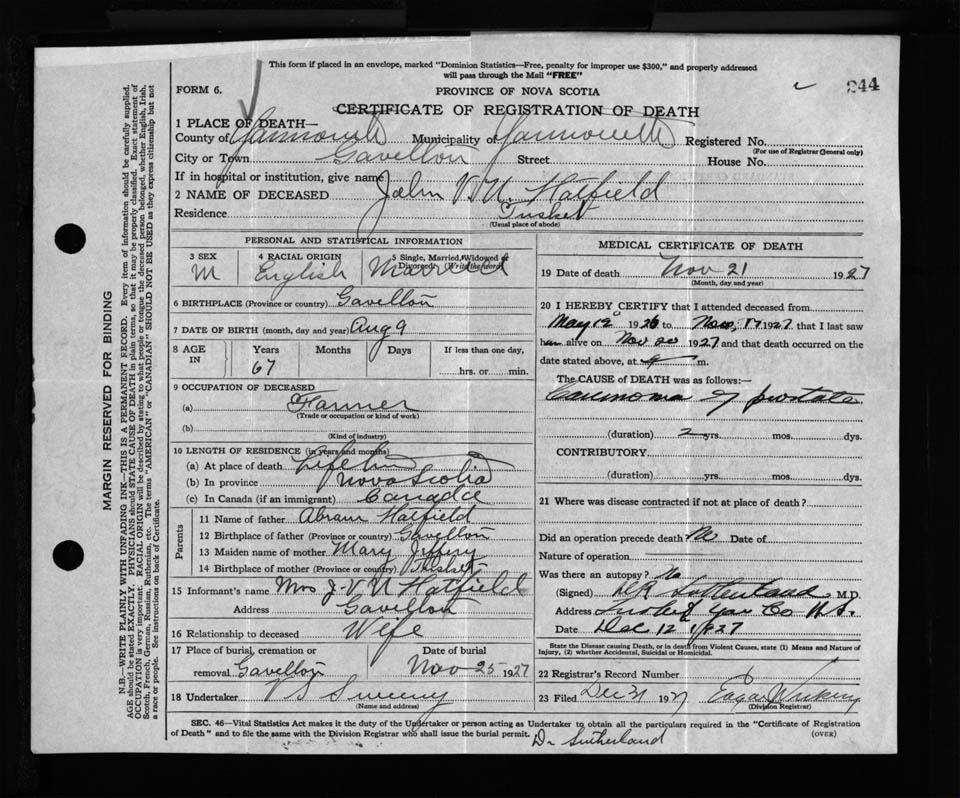 This form if placed in an envelope, marked "Dominion Statistics—Free, penalty for improper use $300," and properly addressed
will pass through the Mail "FREE"
244
FORM 6.
PROVINCE OF NOVA SCOTIA
CERTIFICATE OF REGISTRATION OF DEATH
1 PLACE OF DEATH—
County of Yarmouth Municipality of Yarmouth Registered No.
(For use of Registrar General only)
City or Town Gavelton Street House No.
If in hospital or institution, give name
2 NAME OF DECEASED John V. N. Hatfield
Residence Tusket
(Usual place of abode)
PERSONAL AND STATISTICAL INFORMATION
3 SEX 4 RACIAL ORIGIN 5 Single, Married, Widowed or Divorced (Write the word)
M English Married
6 BIRTHPLACE (Province or country) Gavelton
7 DATE OF BIRTH (month, day and year) Aug 9
8 AGE IN Years Months Days If less than one day,
67 hrs. or min.
9 OCCUPATION OF DECEASED
(a) Farmer
(Trade or occupation or kind of work)
(b)
(Kind of industry)
10 LENGTH OF RESIDENCE (in years and months)
(a) At place of death Life time
(b) In province Nova Scotia
(c) In Canada (if an immigrant) Canada
Parents
11 Name of father Abram Hatfield
12 Birthplace of father (Province or country) Gavelton
13 Maiden name of mother Mary Jeffery
14 Birthplace of mother (Province or country) Tusket
15 Informant's name Mrs J. V. N Hatfield
Address Gavelton
16 Relationship to deceased Wife
17 Place of burial, cremation or removal Gavelton Date of burial Nov 25 1927
18 Undertaker V S Sweeny
(Name and address)
MEDICAL CERTIFICATE OF DEATH
19 Date of death Nov 21 1927
(Month, day and year)
20 I HEREBY CERTIFY that I attended deceased from
May 12 1926 to Nov. 17 1927 that I last saw
him alive on Nov 20 1927 and that death occurred on the
date stated above, at m.
The CAUSE OF DEATH was as follows:—
Carcinoma of prostate
(duration) 2 yrs. mos. dys.
CONTRIBUTORY
(duration) yrs. mos. dys.
21 Where was disease contracted if not at place of death?
Did an operation precede death No Date of
Nature of operation
Was there an autopsy? No
(Signed) Sutherland M.D.
Address Tusket Yar Co N.S.
Date Dec 12 1927
State the Disease causing Death, or in death from Violent Causes, state (1) Means and Nature of
Injury, (2) whether Accidental, Suicidal or Homicidal.
22 Registrar's Record Number
23 Filed Dec 31 1927 Edgar
(Division Registrar)
SEC. 46—Vital Statistics Act makes it the duty of the Undertaker or person acting as Undertaker to obtain all the particulars required in the "Certificate of Registration
of Death" and to file the same with the Division Registrar who shall issue the burial permit. (OVER)
Dr Sutherland
MARGIN RESERVED FOR BINDING
N.B.—WRITE PLAINLY WITH UNFADING INK—THIS IS A PERMANENT RECORD. Every item of information should be carefully supplied.
AGE should be stated EXACTLY. PHYSICIANS should STATE CAUSE OF DEATH in plain terms, so that it may be properly classified. Exact statement of
OCCUPATION is very important. RACIAL ORIGIN will be described by stating to what people or tongue the deceased person belonged, whether English, Irish,
Scotch, French, German, Russian, Ruthenian, etc. The terms "AMERICAN" or "CANADIAN" SHOULD NOT BE USED as they express citizenship but not
a race or people. See instructions on back of Certificate.